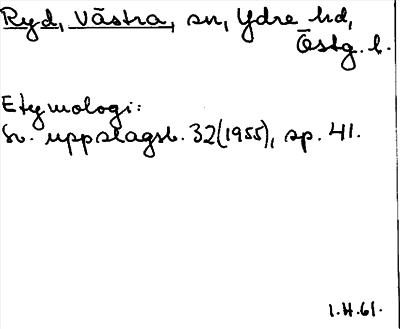 Ryd, Västra, sn, Ydre hd,
Östg. l.
Etymologi:
Sv. uppslagsb. 32(1955), sp. 41.
1.H.61.